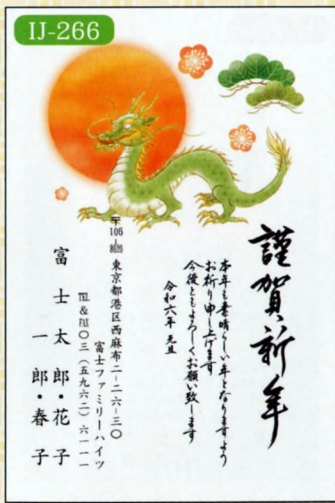 IJ-266
謹賀新年
本年も素晴らしい年となりますよう
お祈り申し上げます
今後ともよろしくお願い致します
令和六年 元旦
〒106-8620 東京都港区西麻布二-二六-三〇
富士ファミリーハイツ
TEL&FAX〇三(五九六二)六一一一
富士太郎・花子
一郎・春子